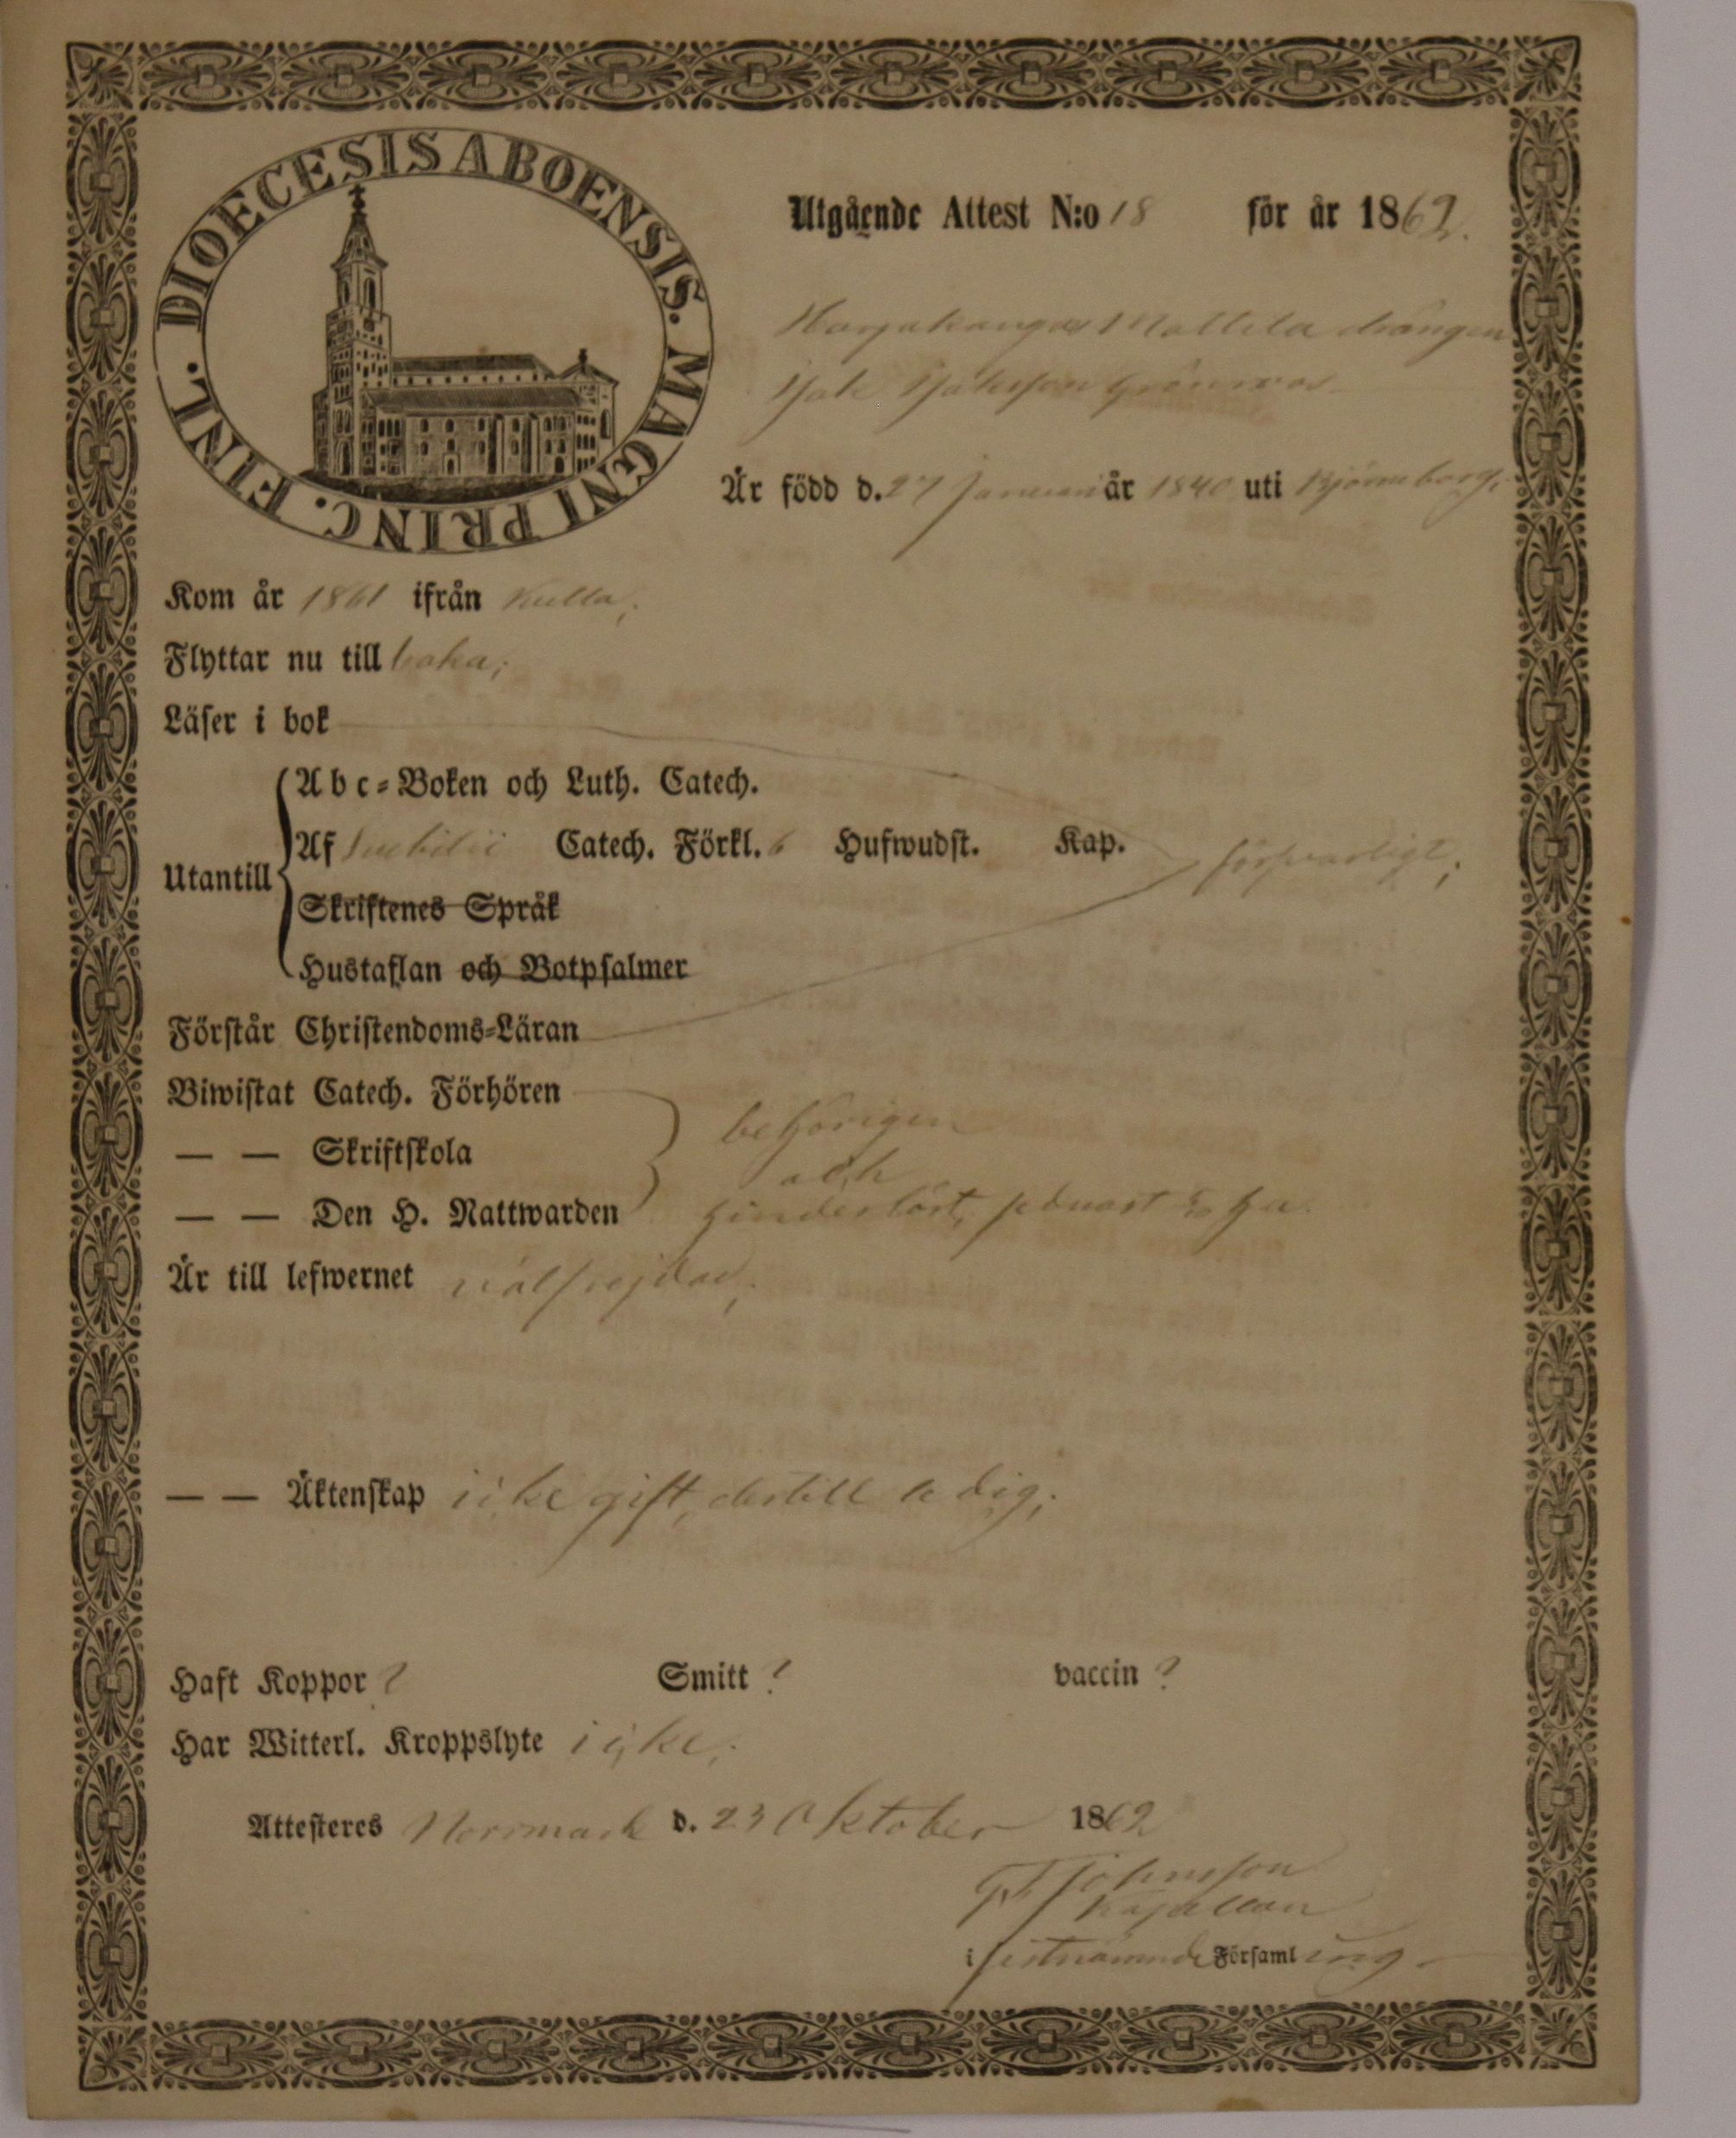 DIOECESIS ABOENSIS. MAGNI PRINC. FINL.
Utgående Attest N:o 18 för år 1862.
Harjakangas Mattila drängen
Isak Isaksson
Är född d. 27 Januari år 1840 uti Björneborg,
Kom år 1861 ifrån Kulla;
Flyttar nu till
Läser i bok
Abc-Boken och Luth. Catech.
Utantill
Af Svebilii Catech. Förkl. 6 Hufwudst. Kap. försvarligt;
Skriftenes Språk
Hustaflan och Botpsalmer
Förstår Christendoms-Läran
Biwistat Catech. Förhören behörigen
— — Skriftskola och
— — Den H. Nattwarden hinderlöst,
Är till lefwernet välfrejdad;
— — Äktenskap icke gift, dertill ledig;
Haft Koppor ? Smitt ? vaccin ?
Har Witterl. Kroppslyte icke;
Attesteres Norrmark d. 23 Oktober 1862
Johnsson
Kapellan
i sistnämnde Församling.